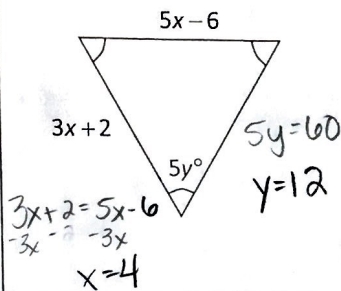 5x – 6
3x + 2
5y°
5y=60
y=12
3x+2 = 5x-6
-3x -2 -3x
x=4